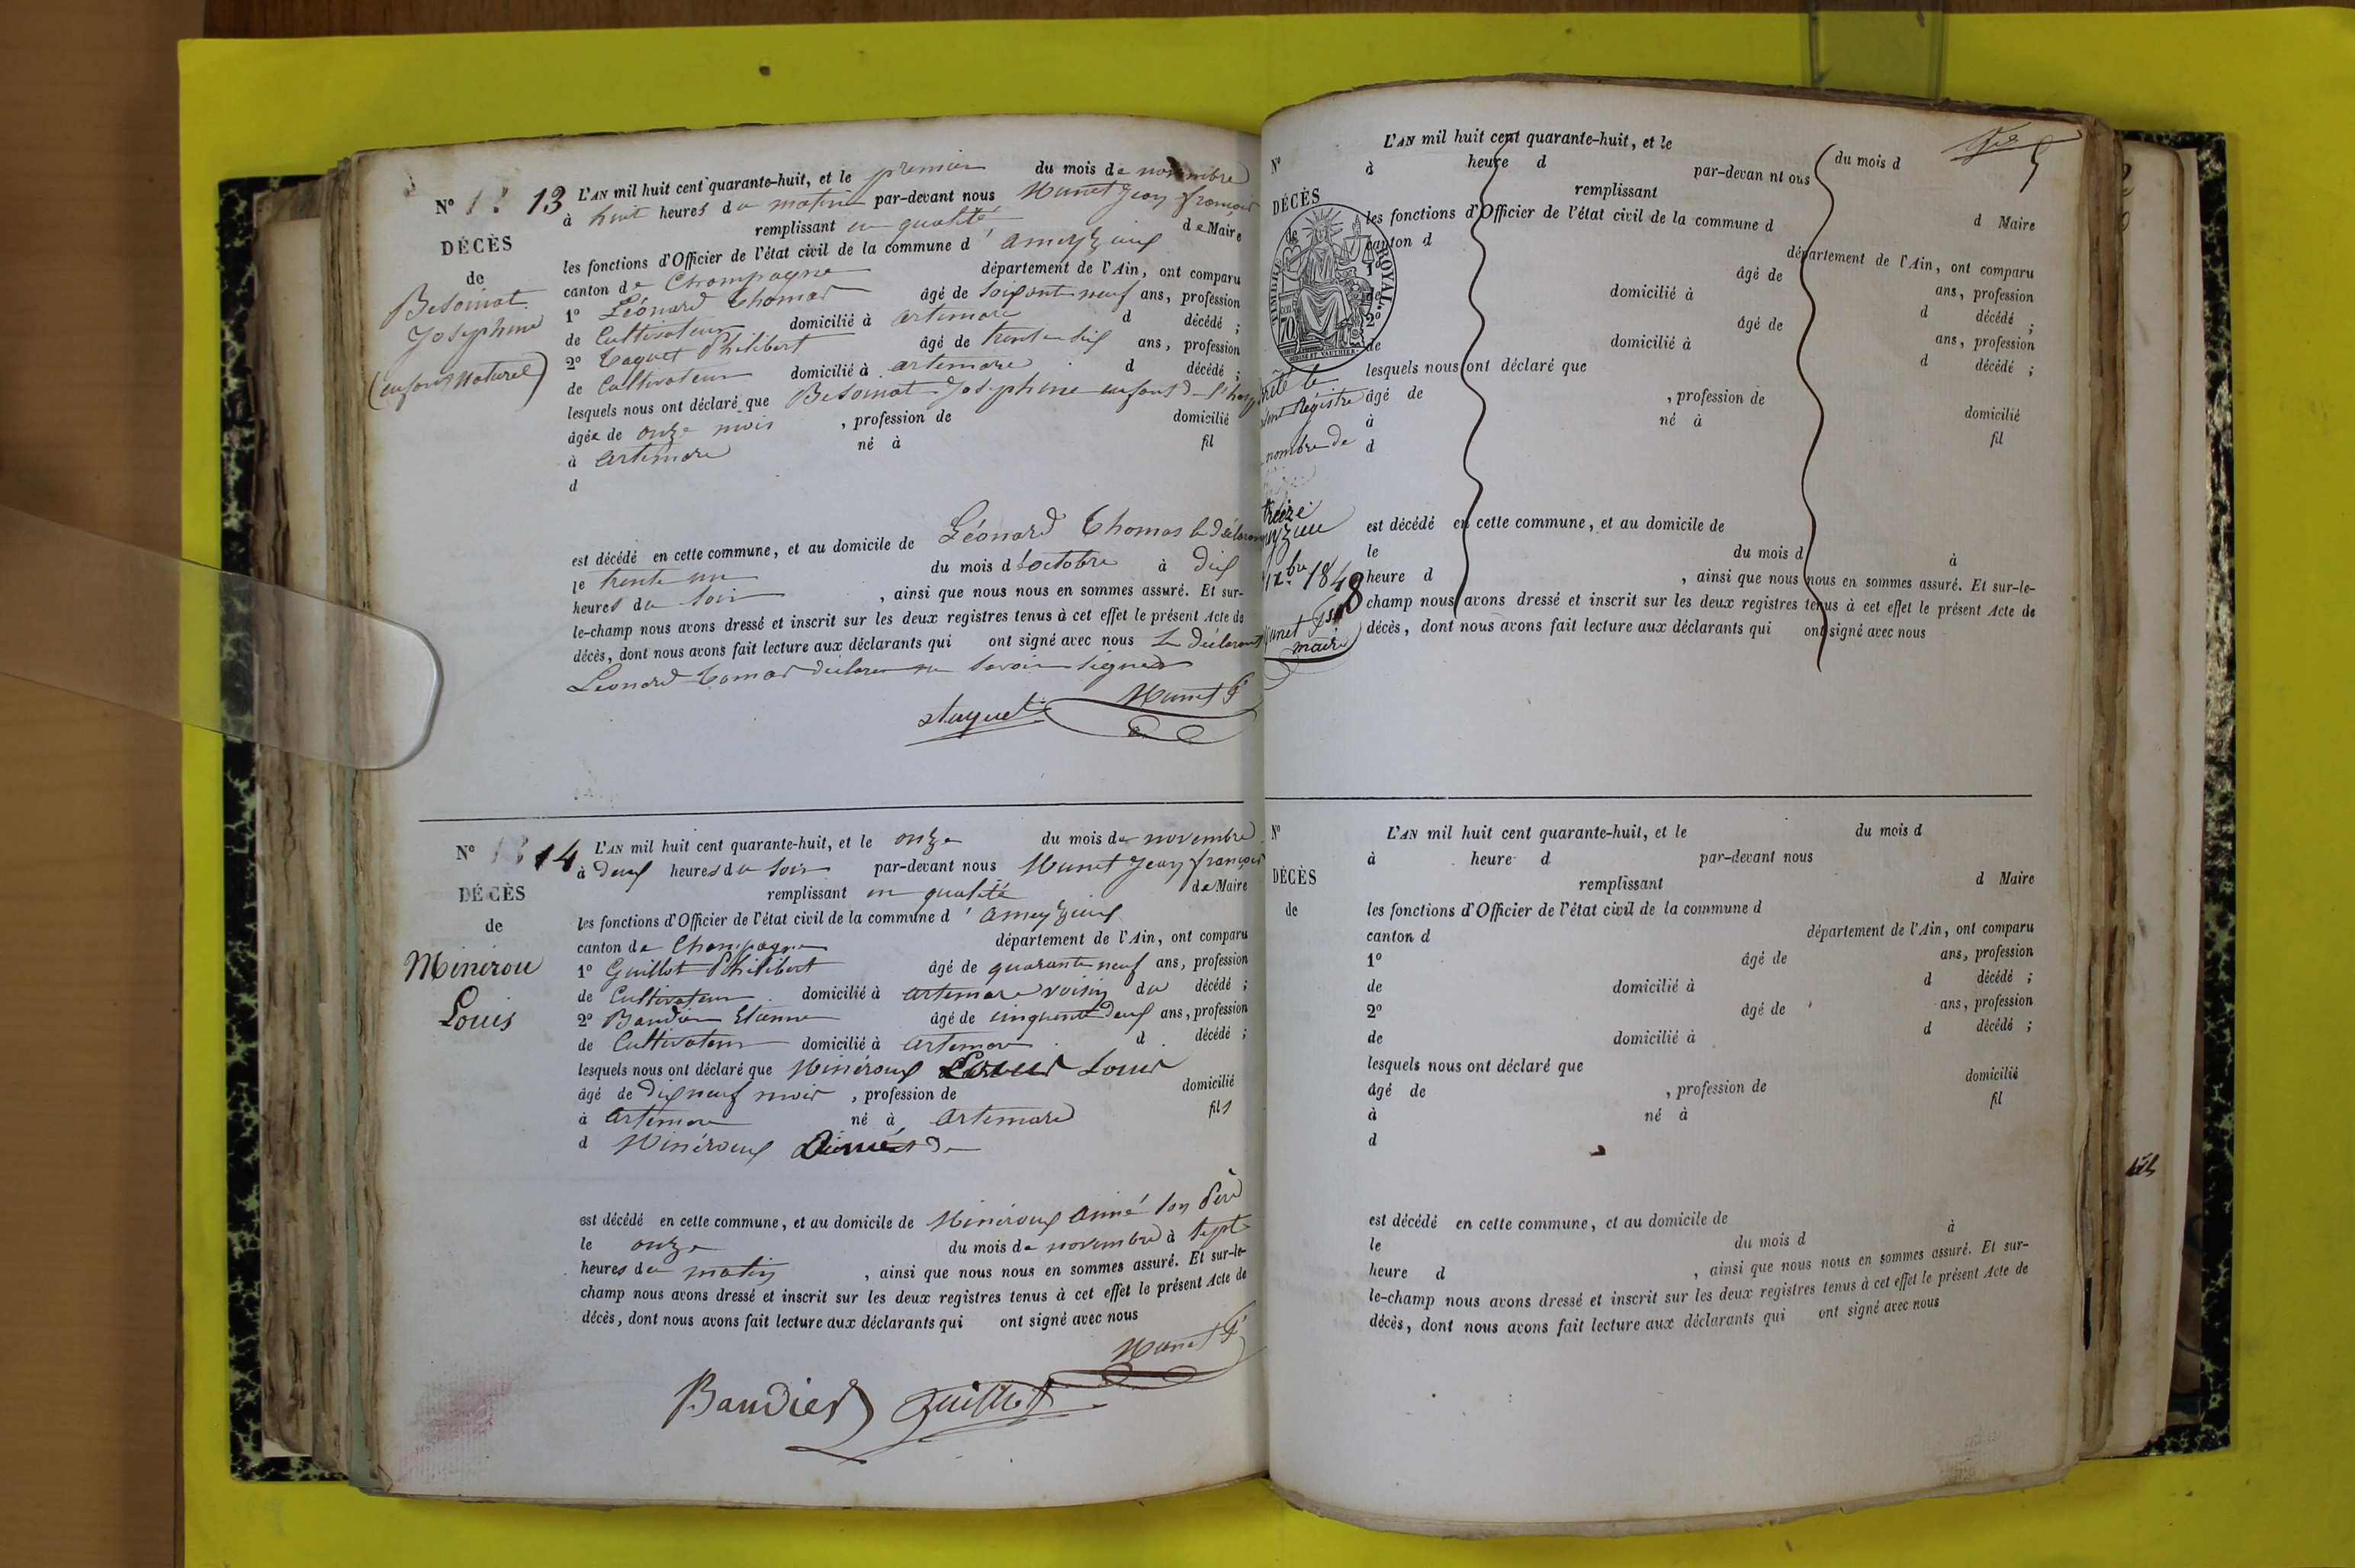 N° 13 L'AN mil huit cent quarante-huit, et le premier du mois de novembre
à huit heures du matin par-devant nous Munet Jean françois
remplissant en qualité de Maire
DÉCÈS
les fonctions d'Officier de l'état civil de la commune d'ameyzieux
de
canton de Champagne département de l'Ain, ont comparu
Josephine
1° Léonard Thomas âgé de soixante neuf ans, profession
de Cultivateur domicilié à artemare d décédé ;
(enfant Naturel)
2° Taquet Philibert âgé de ans, profession
de Cultivateur domicilié à artemare d décédé ;
lesquels nous ont déclaré que Josephine enfant
âgée de onze mois , profession de domicilié
à artemare né à fil
d
est décédé en cette commune, et au domicile de Léonard Thomas le déclarant
le trente un du mois d'octobre à dix
heures du soir , ainsi que nous nous en sommes assuré. Et sur-
le-champ nous avons dressé et inscrit sur les deux registres tenus à cet effet le présent Acte de
décès, dont nous avons fait lecture aux déclarants qui ont signé avec nous Le déclarant
Léonard Tomas déclare ne savoir signer
Munet
N° 14 L'AN mil huit cent quarante-huit, et le onze du mois de novembre
à deux heures du soir par-devant nous Munet Jean françois
remplissant en qualité de Maire
DÉCÈS
les fonctions d'Officier de l'état civil de la commune d'ameyzieux
de
canton de Champagne département de l'Ain, ont comparu
Minerou
1° Guillot Philibert âgé de quarante neuf ans, profession
de Cultivateur domicilié à artemare voisin du décédé ;
Louis
2° Baudier Etienne âgé de cinquante deux ans, profession
de Cultivateur domicilié à artemare d décédé ;
lesquels nous ont déclaré que Minéroux Louis
âgé de dix neuf mois , profession de domicilié
à artemare né à artemare fils
d Minéroux
est décédé en cette commune, et au domicile de Minéroux aimé son père
le onze du mois de novembre à sept
heures du matin , ainsi que nous nous en sommes assuré. Et sur-le-
champ nous avons dressé et inscrit sur les deux registres tenus à cet effet le présent Acte de
décès, dont nous avons fait lecture aux déclarants qui ont signé avec nous
Munet
Baudier Guillot
N° L'AN mil huit cent quarante-huit, et le du mois d
à heure d par-devan nt ous
remplissant d Maire
DÉCÈS
les fonctions d'Officier de l'état civil de la commune d
de
canton d département de l'Ain, ont comparu
TIMBRE ROYAL
70
1° âgé de ans, profession
de domicilié à d décédé ;
2° âgé de ans, profession
de domicilié à d décédé ;
lesquels nous ont déclaré que
Régistre
âgé de , profession de domicilié
à né à fil
nombre de
d
treize
est décédé en cette commune, et au domicile de
le du mois d à
1848
heure d , ainsi que nous nous en sommes assuré. Et sur-le-
champ nous avons dressé et inscrit sur les deux registres tenus à cet effet le présent Acte de
décès, dont nous avons fait lecture aux déclarants qui ont signé avec nous
maire
N° L'AN mil huit cent quarante-huit, et le du mois d
à heure d par-devant nous
remplissant d Maire
DÉCÈS
de les fonctions d'Officier de l'état civil de la commune d
canton d département de l'Ain, ont comparu
1° âgé de ans, profession
de domicilié à d décédé ;
2° âgé de ans, profession
de domicilié à d décédé ;
lesquels nous ont déclaré que
âgé de , profession de domicilié
à né à fil
d
est décédé en cette commune, et au domicile de
le du mois d à
heure d , ainsi que nous nous en sommes assuré. Et sur-
le-champ nous avons dressé et inscrit sur les deux registres tenus à cet effet le présent Acte de
décès, dont nous avons fait lecture aux déclarants qui ont signé avec nous